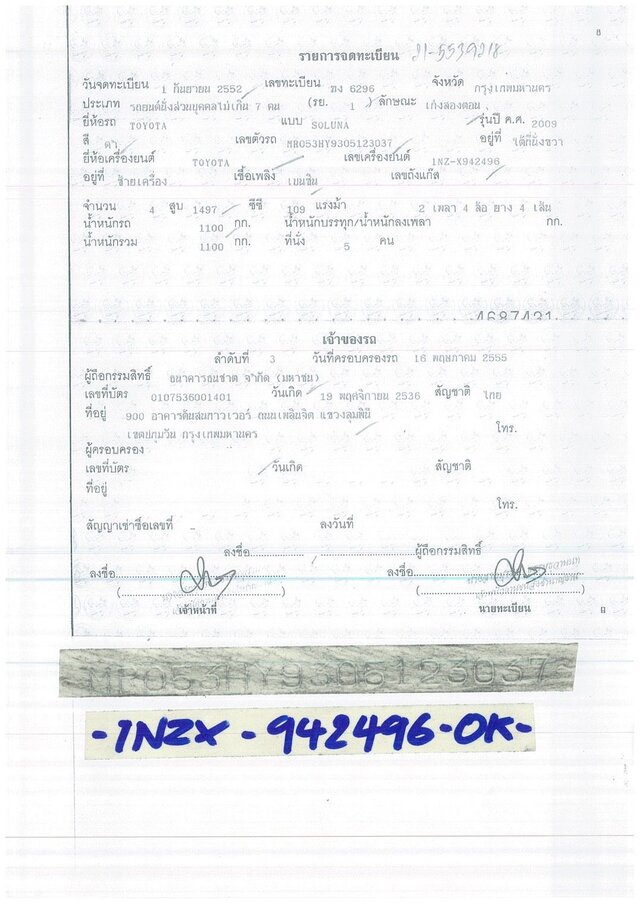 รายการจดทะเบียน 21-5539218
วันจดทะเบียน 1 กันยายน 2552 เลขทะเบียน ฆง 6296 จังหวัด กรุงเทพมหานคร
ประเภท รถยนต์นั่งส่วนบุคคลไม่เกิน 7 คน (รย. 1 ) ลักษณะ เก๋งสองตอน
ยี่ห้อรถ TOYOTA แบบ SOLUNA รุ่นปี ค.ศ. 2009
สี ดำ เลขตัวรถ MR053HY9305123037 อยู่ที่ ใต้ที่นั่งขวา
ยี่ห้อเครื่องยนต์ TOYOTA เลขเครื่องยนต์ 1NZ-X942496
อยู่ที่ ซ้ายเครื่อง เชื้อเพลิง เบนซิน เลขถังแก๊ส
จำนวน 4 สูบ 1497 ซีซี 109 แรงม้า 2 เพลา 4 ล้อ ยาง 4 เส้น
น้ำหนักรถ 1100 กก. น้ำหนักบรรทุก/น้ำหนักลงเพลา กก.
น้ำหนักรวม 1100 กก. ที่นั่ง 5 คน
4687431
เจ้าของรถ
ลำดับที่ 3 วันที่ครอบครองรถ 16 พฤษภาคม 2555
ผู้ถือกรรมสิทธิ์ ธนาคารธนชาต จำกัด (มหาชน)
เลขที่บัตร 0107536001401 วันเกิด 19 พฤศจิกายน 2536 สัญชาติ ไทย
ที่อยู่ 900 อาคารต้นสนทาวเวอร์ ถนนเพลินจิต แขวงลุมพินี
เขตปทุมวัน กรุงเทพมหานคร โทร.
ผู้ครอบครอง
เลขที่บัตร วันเกิด สัญชาติ
ที่อยู่
โทร.
สัญญาเช่าซื้อเลขที่ - ลงวันที่
ลงชื่อ.................... / ....................ผู้ถือกรรมสิทธิ์
ลงชื่อ.................... ลงชื่อ....................
(....................) (....................)
เจ้าหน้าที่ นายทะเบียน
MR053HY9305123037
-1NZX-942496-OK-